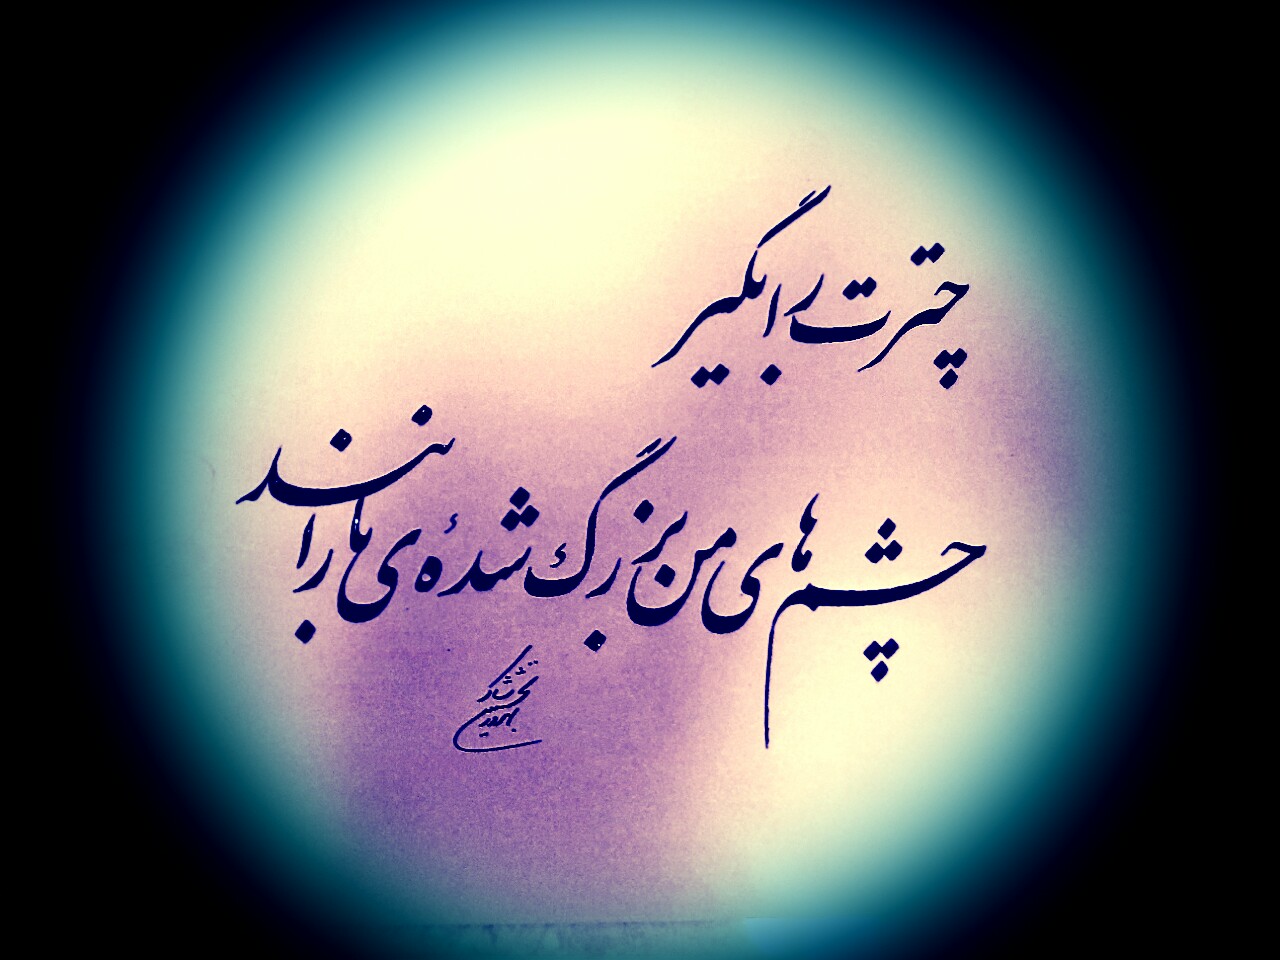 چترت را بگیر
چشم های من بزرگ شدهٔ ی بارانند